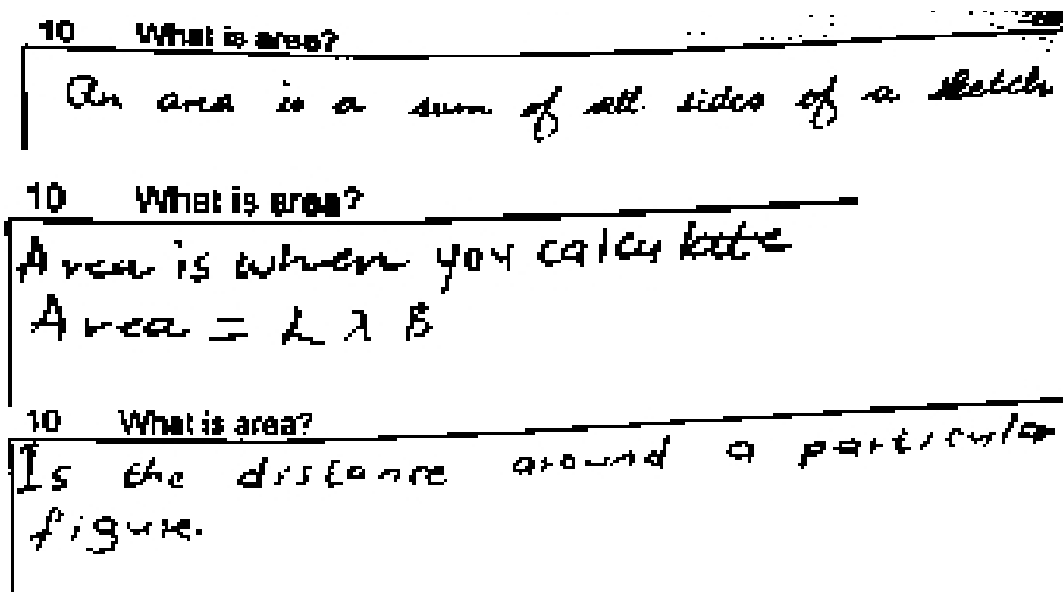 10 What is area?
An area is a sum of all sides of a sketch
10 What is area?
Area is when you calculate
Area = L x B
10 What is area?
Is the distance around a particular
figure.